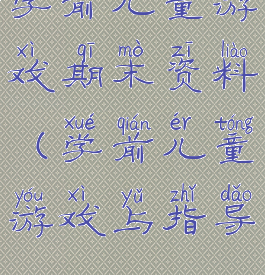 学前儿童游
xì qī mò zī liào
戏期末资料
xué qián ér tóng
（学前儿童
yóu xì yǔ zhǐ dǎo
游戏与指导